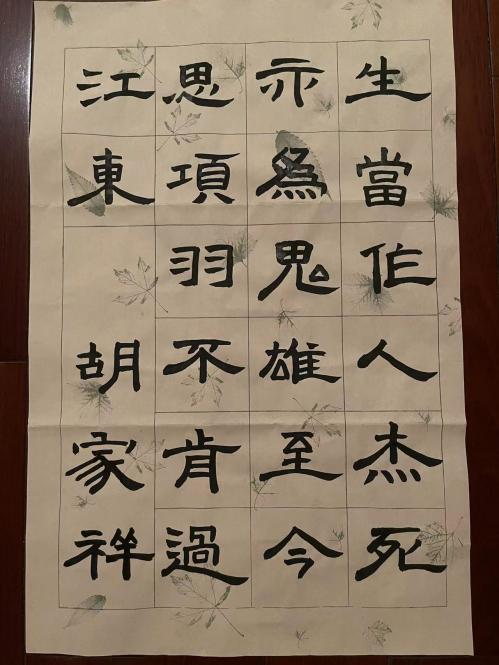 生當作人杰死
亦為鬼雄至今
思項羽不肯過
江東
胡家祥